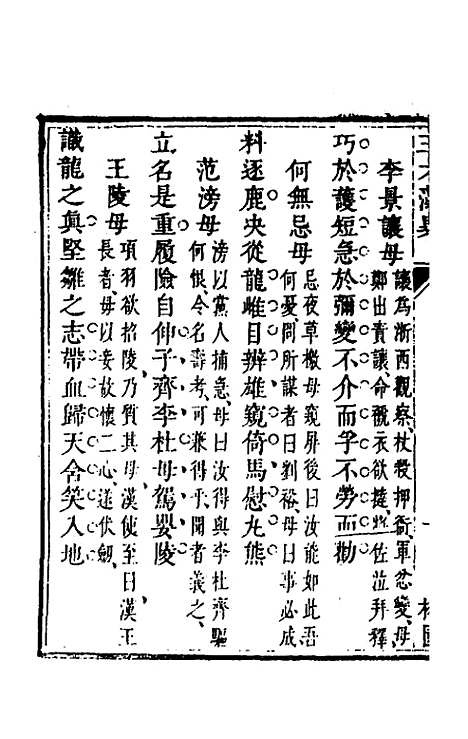 李景讓母
讓為浙西觀察杖殺押衙軍忿變母
鄭出責讓命褫衣欲撻將佐泣拜釋
巧於護短急於彌變不介而孚不勞而勸
何無忌母
忌夜草檄母窺屏後曰汝能如此吾
何憂問所謀者曰劉裕母曰事必成
料逐鹿央從龍雌目辨雄窺倚馬慰丸熊
范滂母
滂以黨人捕急母曰汝得與李杜齊驅
何恨令名壽考可兼得乎聞者義之
立名是重履險自伸子齊李杜母駕嬰陵
王陵母
項羽欲招陵乃質其母漢使至曰漢王
長者毋以妾故懷二心遂伏劒
識龍之真堅雛之志帶血歸天含笑入地